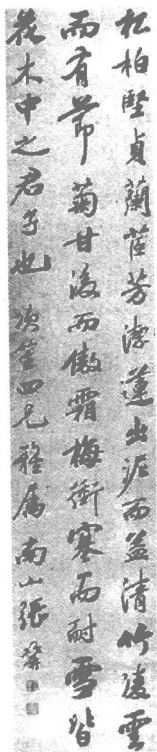 松柏堅貞蘭茝芳潔蓮出泥而益清竹凌雲
而有節菊甘後而傲霜梅衝寒而耐雪皆
花木中之君子也四兄雅屬南山張